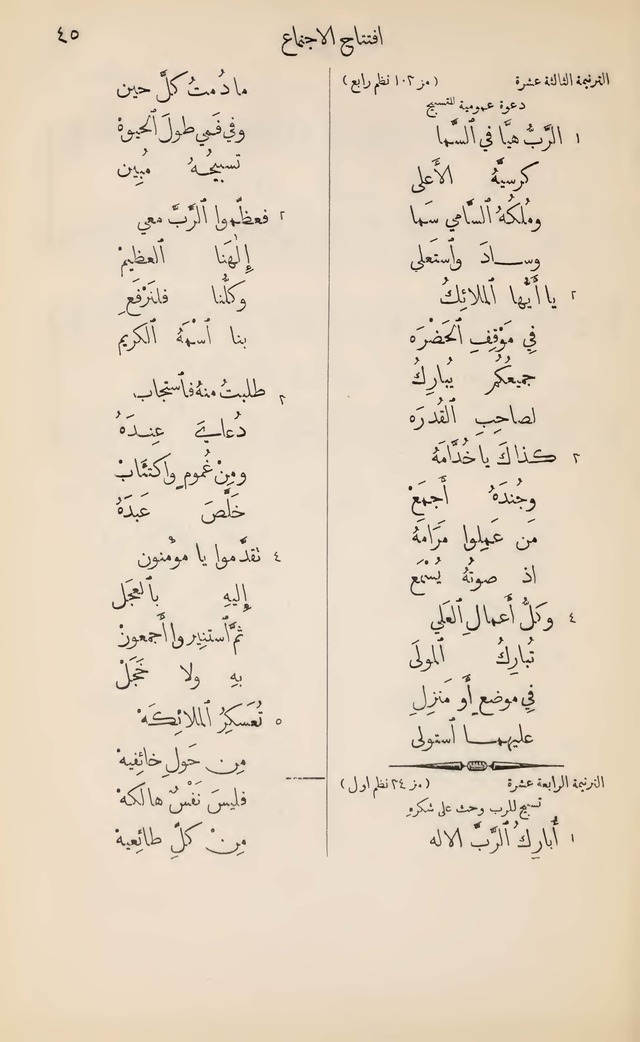 افتتاح الاجتماع
٤٥
الترنيمة الثالثة عشرة (مز ١٠٢ نظم رابع)
دعوة عمومية للتسبيح
١ الرَّبُّ هيَّا في اَلسَّما
كرسيَّهُ الأَعلى
ومُلكُهُ اَلسَّامي سَما
وساد واَستَعلى
٢ يا أَيُّها اَلملائِكُ
في مَوْقِفِ اَلحَضْرَه
جميعُكُم يُبارِكُ
لصاحِبِ اَلقُدرَه
٣ كذاكَ يا خُدَّامَهُ
وجُندَهُ أَجمَعْ
مَن عَمِلوا مَرَامَهُ
اذ صوتُهُ يُسْمَع
٤ وكلُّ أَعمالِ اَلعَلي
تُبارِكُ اَلمولَى
في موضعٍ أَو مَنزِلِ
عليهما اَستولى
الترنيمة الرابعة عشرة (مز ٣٤ نظم اول)
تسبيح للرب وحث على شكرهِ
١ أُبارِكُ اَلرَّبَّ الاله
ما دُمتُ كلَّ حين
وفي فَمي طولَ اَلحيوهْ
تسبيحُهُ مُبِين
٢ فعظِّموا اَلرَّبَّ معي
إِلٰهَنا اَلعظيمْ
وكلُّنا فلنَرْفَعِ
بنا اَسْمَهُ اَلكريم
٣ طلبتُ منهُ فاَستجاب
دُعايَ عِندَهُ
ومِنْ غُمومٍ واكتئَابْ
خَلَّصَ عَبدَهُ
٤ تقدَّموا يا مؤْمنون
إِليهِ باَلعجَل
ثمَّ اَستنيروا أَجمعونْ
بهِ ولا خَجَلْ
٥ تُعَسكِرُ اَلملائِكَهْ
مِن حَولِ خائِفيهْ
فليسَ نَفْسٌ هالكهْ
مِنْ كلِّ طائِعيهْ